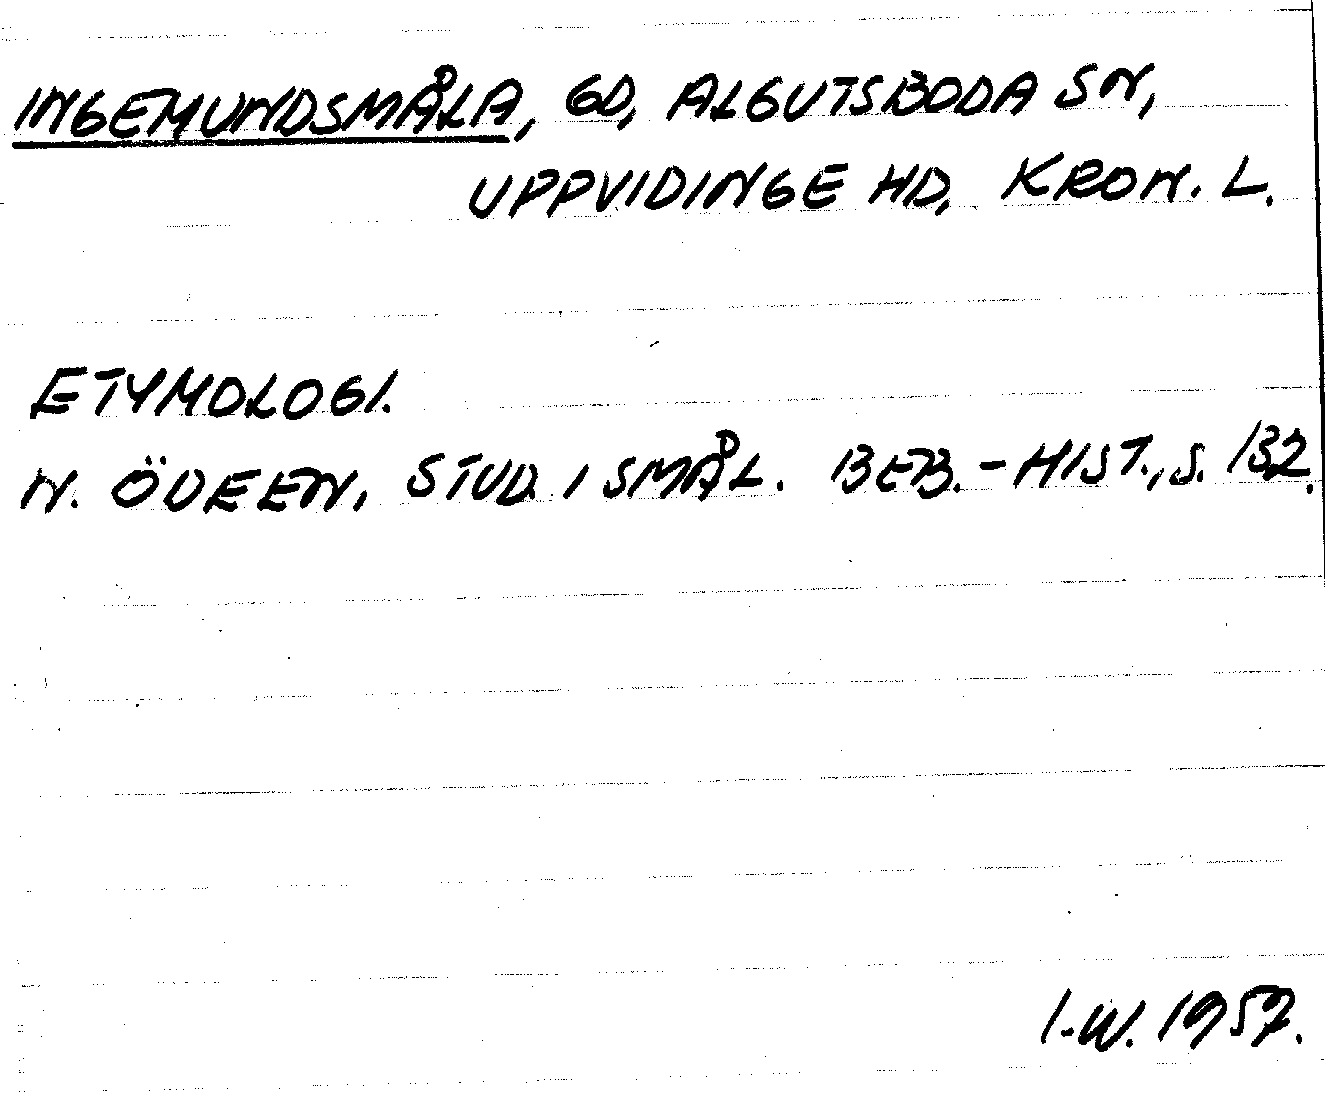 INGEMUNDSMÅLA, GD, ALGUTSBODA SN,
UPPVIDINGE HD, KRON. L.
ETYMOLOGI.
N. ÖDEEN, STUD. I SMÅL. BEB.-HIST., S. 132.
I-W. 1957.